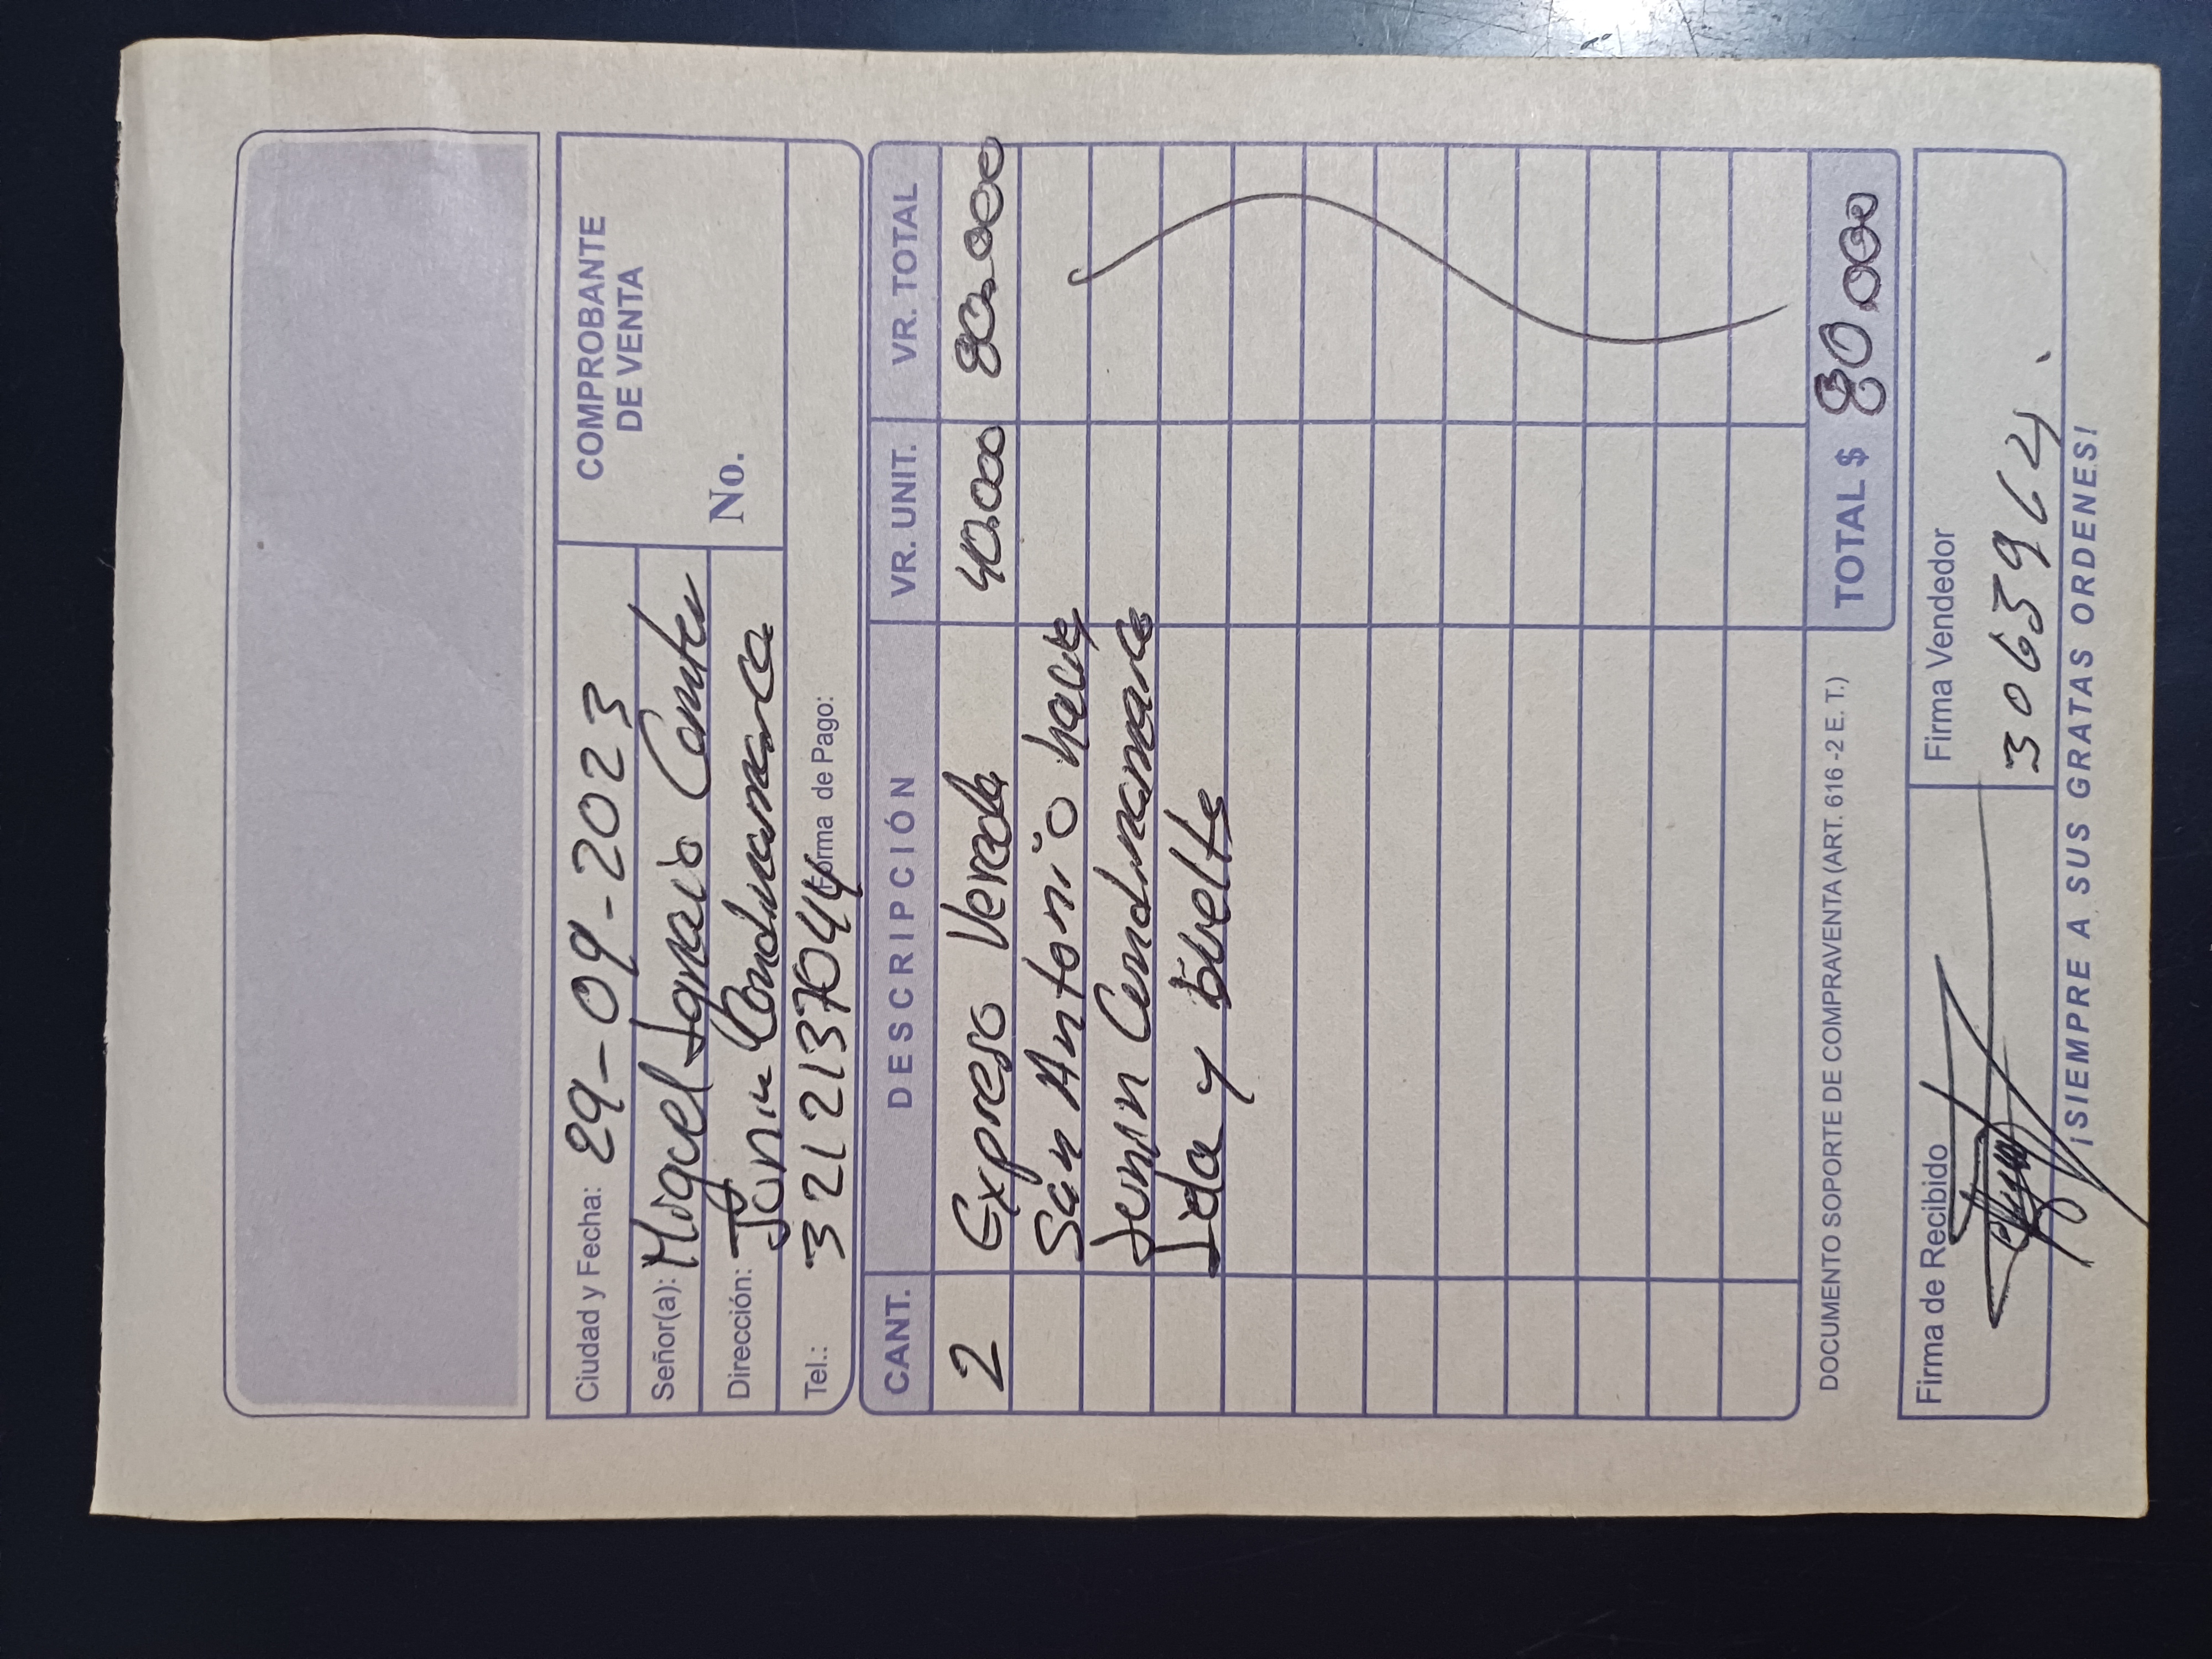 COMPROBANTE
DE VENTA
No.
Ciudad y Fecha: 29-09-2023
Señor(a): Miguel Ignacio
Dirección: Junin Cundinamarca
Tel.: 3212137044 Forma de Pago:
CANT. DESCRIPCIÓN VR. UNIT. VR. TOTAL
2 Expreso Vereda 40.000 80.000
San Antonio
Junin Cundinamarca
Ida y buelta
DOCUMENTO SOPORTE DE COMPRAVENTA (ART. 616 -2 E. T.) TOTAL $ 80.000
Firma de Recibido Firma Vendedor
3063964
¡SIEMPRE A SUS GRATAS ORDENES!